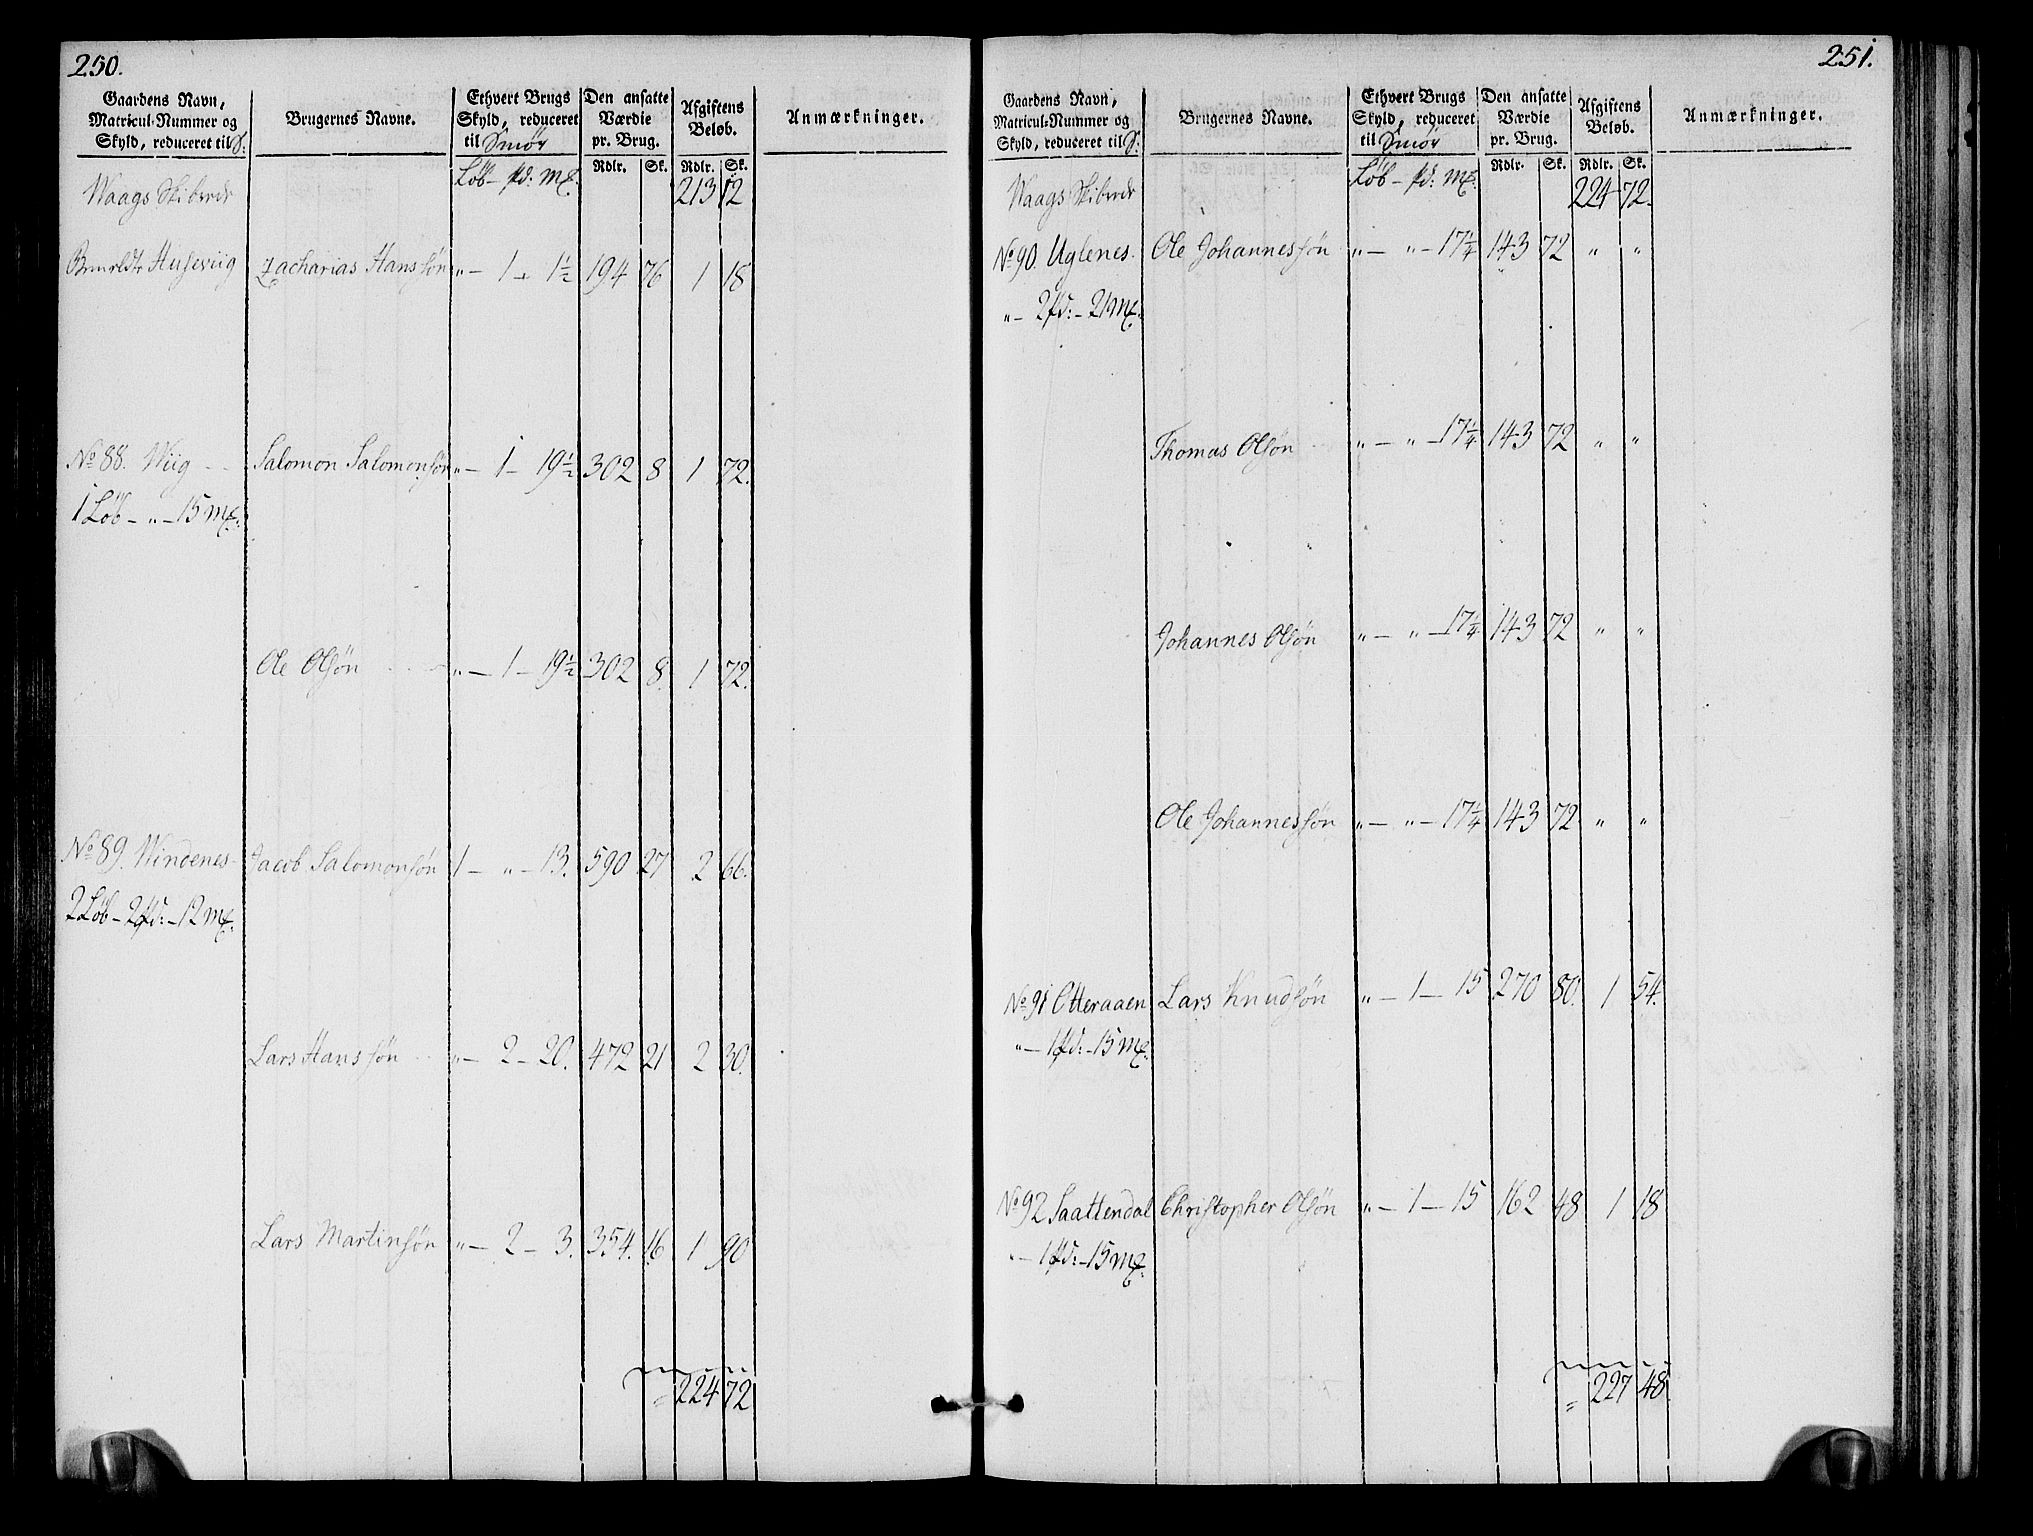 250.
Gaardens Navn, Matricul-Nummer og Skyld, reduceret til S. | Brugernes Navne. | Ethvert Brugs Skyld, reduceret til Smør | Den ansatte Værdie pr. Brug. | Afgiftens Beløb. | Anmærkninger.
Løb – pd: mk: | Rdlr. | Sk. | Rdlr. | Sk.
Waags Skibrede 213 12
Husevig Zacharias Hanssøn „ – 1 – 1½ 194 76 1 18
No 88. Wiig Salomon Salomonsøn „ – 1 – 19½ 302 8 1 72.
1 Løb – „ – 15 mk:
Ole Olsøn „ – 1 – 19½ 302 8. 1 72.
No 89. Windenes Jacob Salomonsøn 1 – „ – 13. 590 27 2 66.
2 Løb – 2 pd: – 12 mk:
Lars Hanssøn „ – 2 – 20. 472 21 2 30.
Lars Martinsøn „ – 2 – 3. 354. 16 1 90
= 224 72
251.
Gaardens Navn, Matricul-Nummer og Skyld, reduceret til S. | Brugernes Navne. | Ethvert Brugs Skyld, reduceret til Smør | Den ansatte Værdie pr. Brug. | Afgiftens Beløb. | Anmærkninger.
Løb – pd: mk: | Rdlr. | Sk. | Rdlr. | Sk.
Waags Skibrede 224 72.
No 90. Uglenes. Ole Johannessøn „ – „ – 17¼ 143 72 „ „
„ – 2 pd: – 21 mk:
Thomas Olsøn „ – „ – 17¼ 143 72 „ „
Johannes Olsøn „ – „ – 17¼ 143 72 „ „
Ole Johannessøn „ – „ – 17¼ 143 72 „ „
No 91 Otteraaen Lars Knudsøn „ – 1 – 15 270 80. 1 54.
„ – 1 pd: – 15 mk:
No 92 Saattendal Christopher Olsøn „ – 1 – 15 162 48 1 18
„ – 1 pd: – 15 mk:
= 227 48